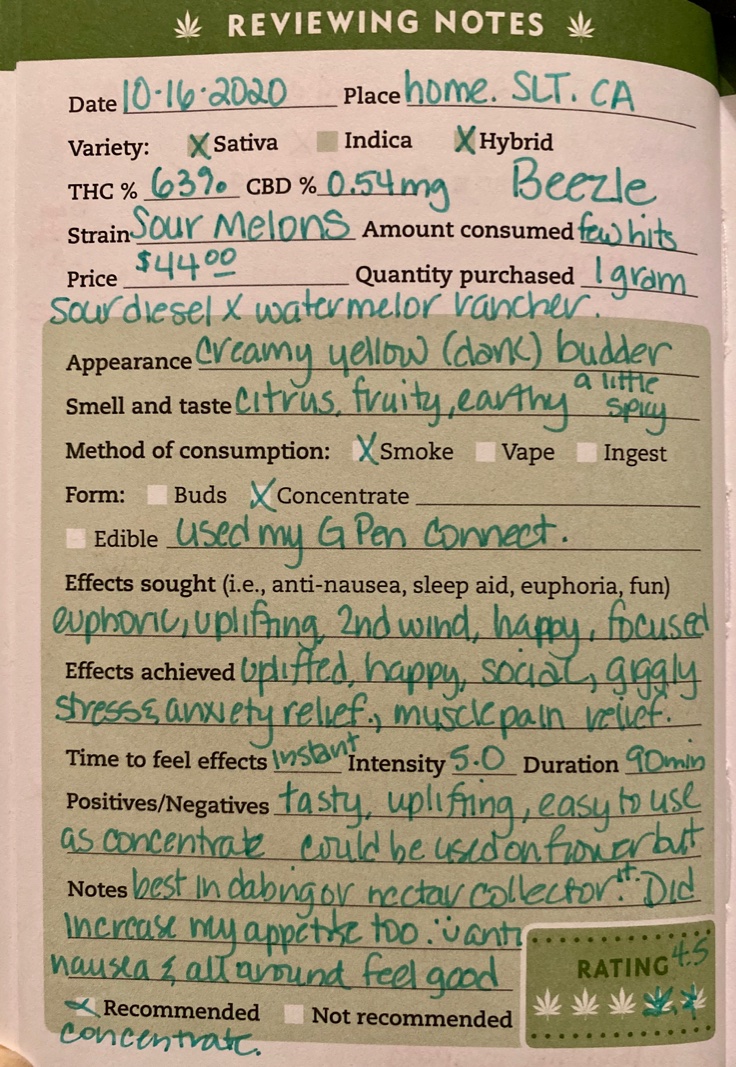 REVIEWING NOTES
Date 10-16-2020 Place home. SLT. CA
Variety: X Sativa Indica X Hybrid
THC % 63% CBD % 0.54mg Beezle
Strain Sour Melons Amount consumed few hits
Price $44.00 Quantity purchased 1 gram
Sour diesel X watermelor rancher.
Appearance creamy yellow (dank) budder
Smell and taste citrus, fruity, earthy a little spicy
Method of consumption: X Smoke Vape Ingest
Form: Buds X Concentrate
Edible used my G Pen Connect.
Effects sought (i.e., anti-nausea, sleep aid, euphoria, fun)
euphoric, uplifting, 2nd wind, happy, focused
Effects achieved uplifted, happy, social, giggly
stress & anxiety relief., muscle pain relief.
Time to feel effects instant Intensity 5.0 Duration 90min
Positives/Negatives tasty, uplifting, easy to use
as concentrate could be used on flower but
Notes best in dabrig or nectar collector. Did it.
increase my appetite too. :) anti
nausea & all around feel good
RATING 4.5
X Recommended Not recommended
concentrate.